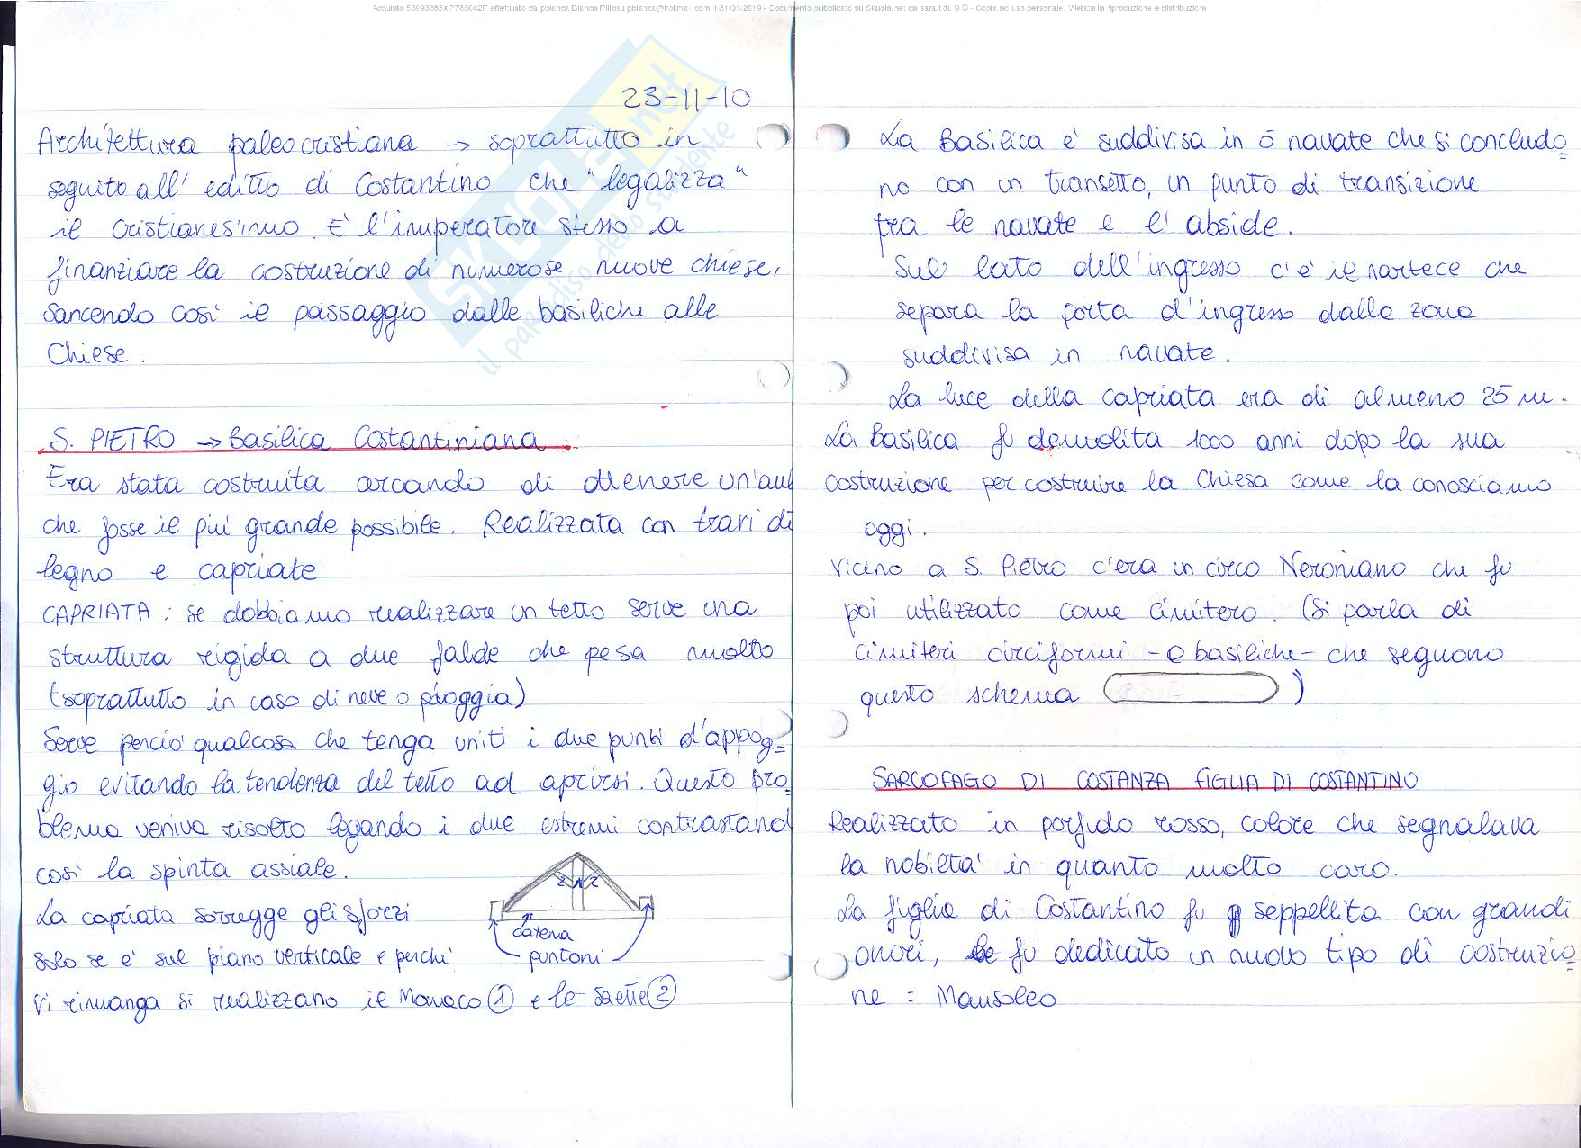 23-11-10
Architettura paleocristiana → soprattutto in
seguito all'editto di Costantino che "legalizza"
il cristianesimo. È l'imperatore stesso a
finanziare la costruzione di numerose nuove chiese,
sancendo così il passaggio dalle basiliche alle
Chiese.
S. PIETRO → Basilica Costantiniana
Era stata costruita cercando di ottenere un'aul
che fosse il più grande possibile. Realizzata con travi di
legno e capriate
CAPRIATA: se dobbiamo realizzare un tetto serve una
struttura rigida a due falde che pesa molto
(soprattutto in caso di neve o pioggia)
Serve perciò qualcosa che tenga uniti i due punti d'appog=
gio evitando la tendenza del tetto ad aprirsi. Questo pro=
blema veniva risolto legando i due estremi contrastand
così la spinta assiale.
La capriata sorregge gli sforzi
solo se è sul piano verticale e perché
vi rimanga si realizzano il Monaco ① e le Saette ②
2 1 2
catena
puntoni
La Basilica è suddivisa in 5 navate che si concludo=
no con un transetto, un punto di transizione
fra le navate e l'abside.
Sul lato dell'ingresso c'è il nartece che
separa la porta d'ingresso dalla zona
suddivisa in navate.
La luce della capriata era di almeno 25 m.
La Basilica fu demolita 1000 anni dopo la sua
costruzione per costruire la Chiesa come la conosciamo
oggi.
Vicino a S. Pietro c'era un circo Neroniano che fu
poi utilizzato come cimitero. (Si parla di
cimiteri circiformi - o basiliche - che seguono
questo schema )
SARCOFAGO DI COSTANZA FIGLIA DI COSTANTINO
Realizzato in porfido rosso, colore che segnalava
la nobiltà in quanto molto caro.
La figlia di Costantino fu seppellita con grandi
onori, le fu dedicato un nuovo tipo di costruzio=
ne: Mausoleo
skuola.net
il paradiso dello studente